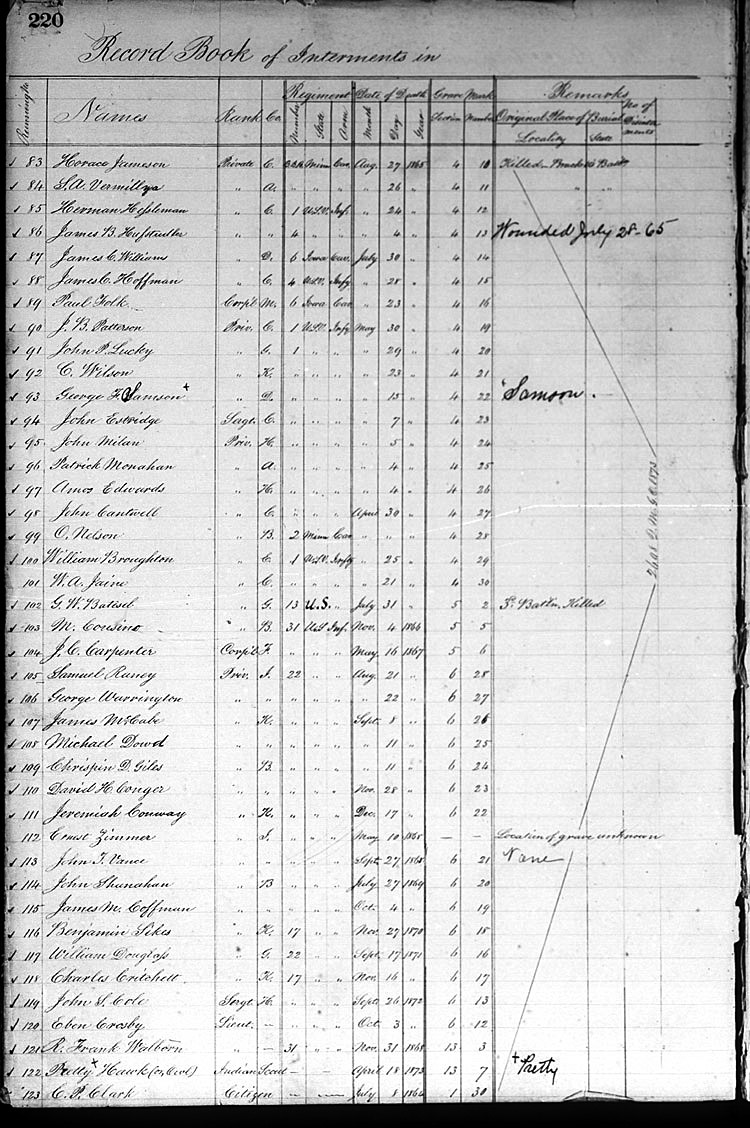 220
Record Book of Interments in
Names Rank Co. Regiment Date of Death Grave Mark Remarks
Number State Arm Month Day Year Section Number Original Place of Burial No. of
Locality State
83 Horace Jameson Private C. Minn Cav. Aug. 27 1865 4 10 Killed
84 S.A. Vermillya " A. " " " " 26 " 4 11 " "
85 Herman Hessleman " C. 1 U.S.V. Inf. " 24 " 4 12
86 James B. Hufstudler " " 4 " " " 4 " 4 13 Wounded July 28-65
87 James C. Williams " D. 6 Iowa Cav. July 30 " 4 14
88 James C. Hoffman " C. 4 U.S.V. Infy " 28 " 4 15
89 Paul Folk Corp'l M. 6 Iowa Cav " 23 " 4 16
90 J. B. Patterson Priv. C. 1 U.S.V. Infy May 30 " 4 19
91 John P. Lucky " G. 1 " " " 29 " 4 20
92 C. Wilson " K. " " " " 23 " 4 21
93 George F. Samson + " D. " " " " 15 " 4 22 "Samson.
94 John Estridge Sergt. C. " " " " 7 " 4 23
95 John Milan Priv. H. " " " " 5 " 4 24
96 Patrick Monahan " A. " " " " 4 " 4 25
97 Amos Edwards " H. " " " " 4 " 4 26
98 John Cantwell " C. " " " April 30 " 4 27
99 O. Nelson " B. 2 Minn Cav " " " 4 28
100 William Broughton " C. 1 U.S.V. Infty " 25 " 4 29
101 W. A. Jaine " C. " " " " 21 " 4 30
102 G. W. Batisel " G. 13 U.S. " July 31 " 5 2 Killed
103 M. Cousino " B. 31 U.S. Inf. Nov. 4 1866 5 5
104 J. C. Carpenter Corp'l F. " " " May 16 1867 5 6
105 Samuel Raney Priv. I. 22 " " Aug. 21 " 6 28
106 George Warrington " " " " " " 22 " 6 27
107 James McCabe " K. " " " Sept. 8 " 6 26
108 Michael Dowd " " " " " " 11 " 6 25
109 Chrispin D. Giles " B. " " " " 11 " 6 24
110 David H. Conger " " " " " Nov. 28 " 6 23
111 Jeremiah Conway " K. " " " Dec. 17 " 6 22
112 Ernest Zimmer " I. " " " May 10 1868 — — Location of grave unknown
113 John T. Vance " " " " " Sept. 27 1868 6 21 Vane
114 John Shanahan " B " " " July 27 1869 6 20
115 James M. Coffman " " " " " Oct. 4 " 6 19
116 Benjamin Sikes " K. 17 " " Nov. 27 1870 6 15
117 William Douglass " G. 22 " " Sept. 17 1871 6 16
118 Charles Critchett " K. 17 " " Nov. 16 " 6 17
119 John S. Cole Sergt. H. " " " Sept. 26 1872 6 13
120 Eben Crosby Lieut. — " " " Oct. 3 " 6 12
121 R. Frank Walborn — 31 " " Nov. 31 1868 13 3
122 Pretty + Hawk (or, Owl) Indian Scout — " — April 18 1873 13 7 + Pretty
123 C. P. Clark Citizen July 8 1864 1 30